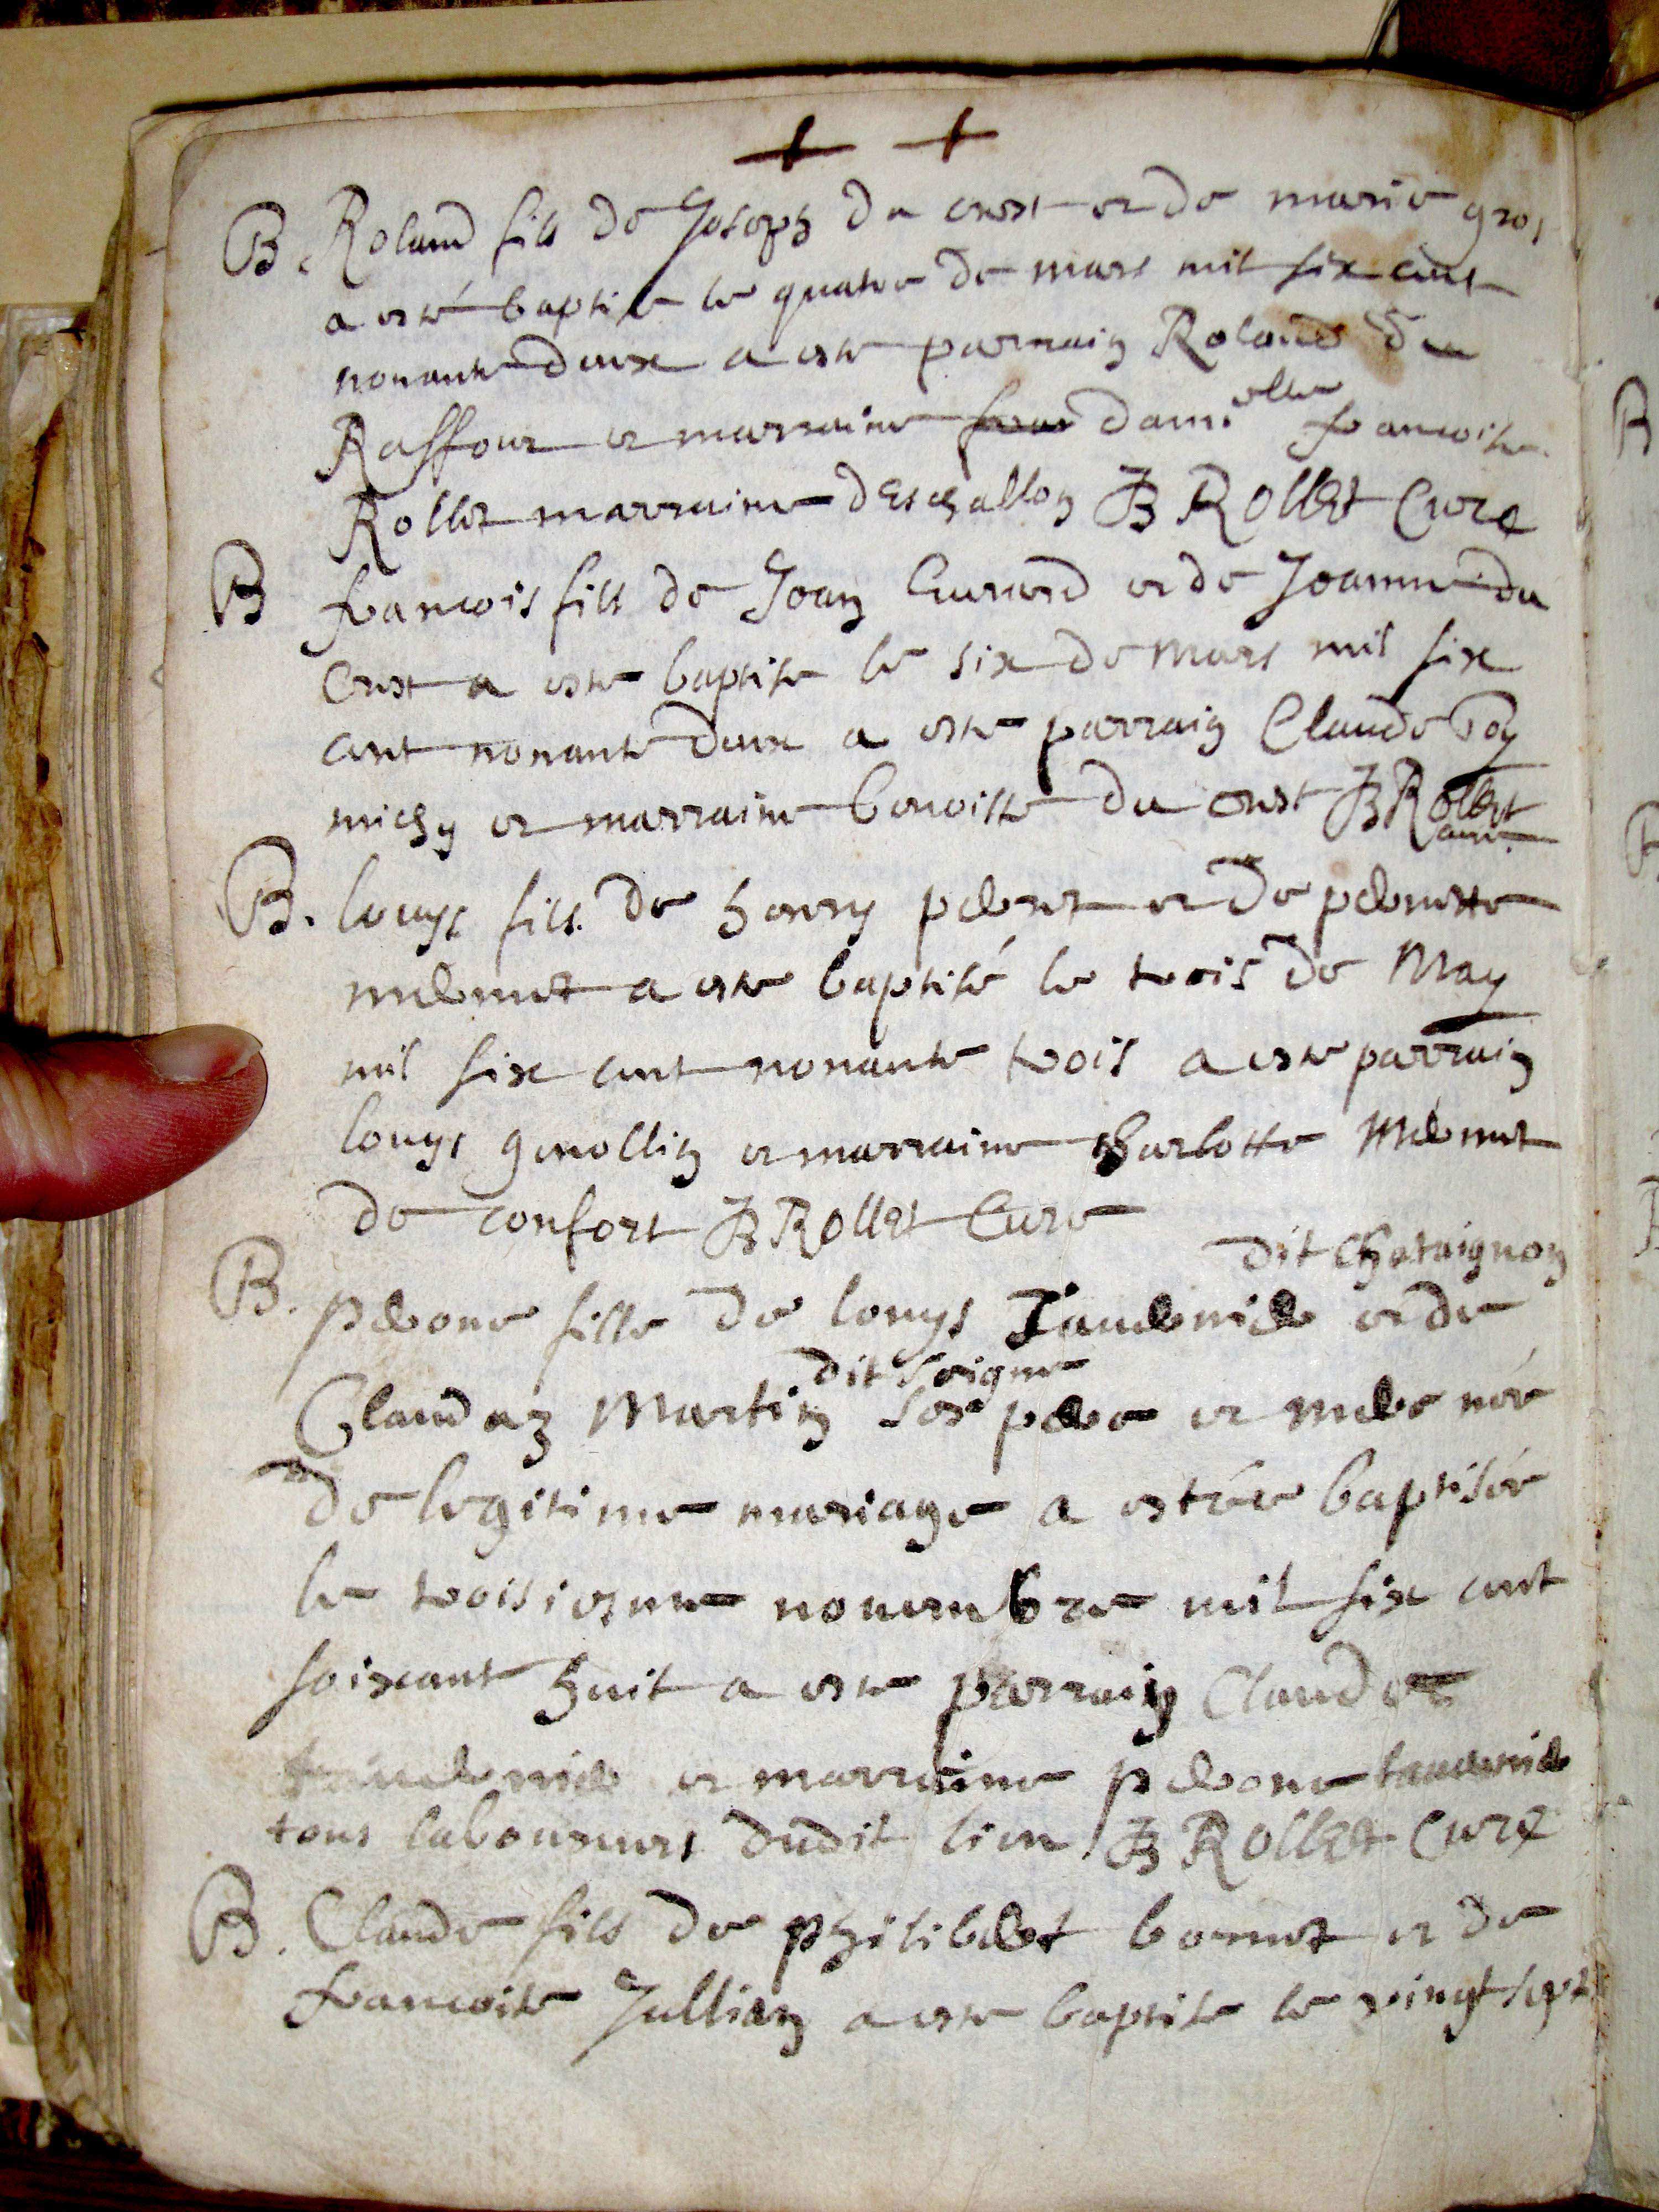 B. Roland fils de Joseph du crest et de marie gros
a esté baptise le quatre de mars mil six cent
nonante deux a este parrain Roland du
Raffour et marraine dam.elle francoise
Rollet marraine dEschallon JB Rollet Curé
B francois fils de Jean Evrard et de Jeanne du
Crest a este baptise le six de mars mil six
cent nonante deux a este parrain Claude
michy et marraine benoitte du crest JB Rollet
curé.
B. louys fils de henry perret et de pernette
mermet a este baptisé le trois de May
mil six cent nonante trois a este parrain
louys genollin et marraine charlotte Mermet
de confort JB Rollet Cure
dit Chataignon
B. perone fille de louys Tavernier et de
dit Seigne
Claudaz Martin ses pere et mere née
de legitime mariage a estée baptisée
le troisiesme novembre mil six cent
soixant huit a este parrain Claude
tavernier et marraine perone tavernier
tous laboureurs dudit lieu JB Rollet Curé
B. Claude fils de philibert bornet et de
francoise Jullian a este baptise le vingt sept